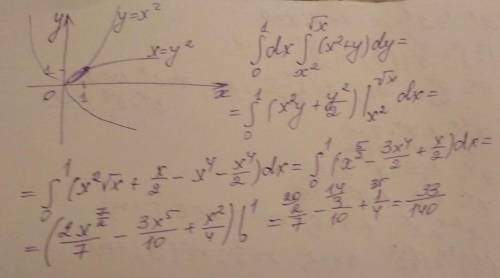 y
y=x²
x=y²
1
0
1
x
∫₀¹ dx ∫_{x²}^{√x} (x²+y) dy =
= ∫₀¹ (x²y + y²/2) |_{x²}^{√x} dx =
= ∫₀¹ (x²√x + x/2 - x⁴ - x⁴/2) dx = ∫₀¹ (x^{5/2} - 3x⁴/2 + x/2) dx =
= (2x^{7/2}/7 - 3x⁵/10 + x²/4) |₀¹ = ²⁰2/7 - ¹⁴3/10 + ³⁵1/4 = 33/140